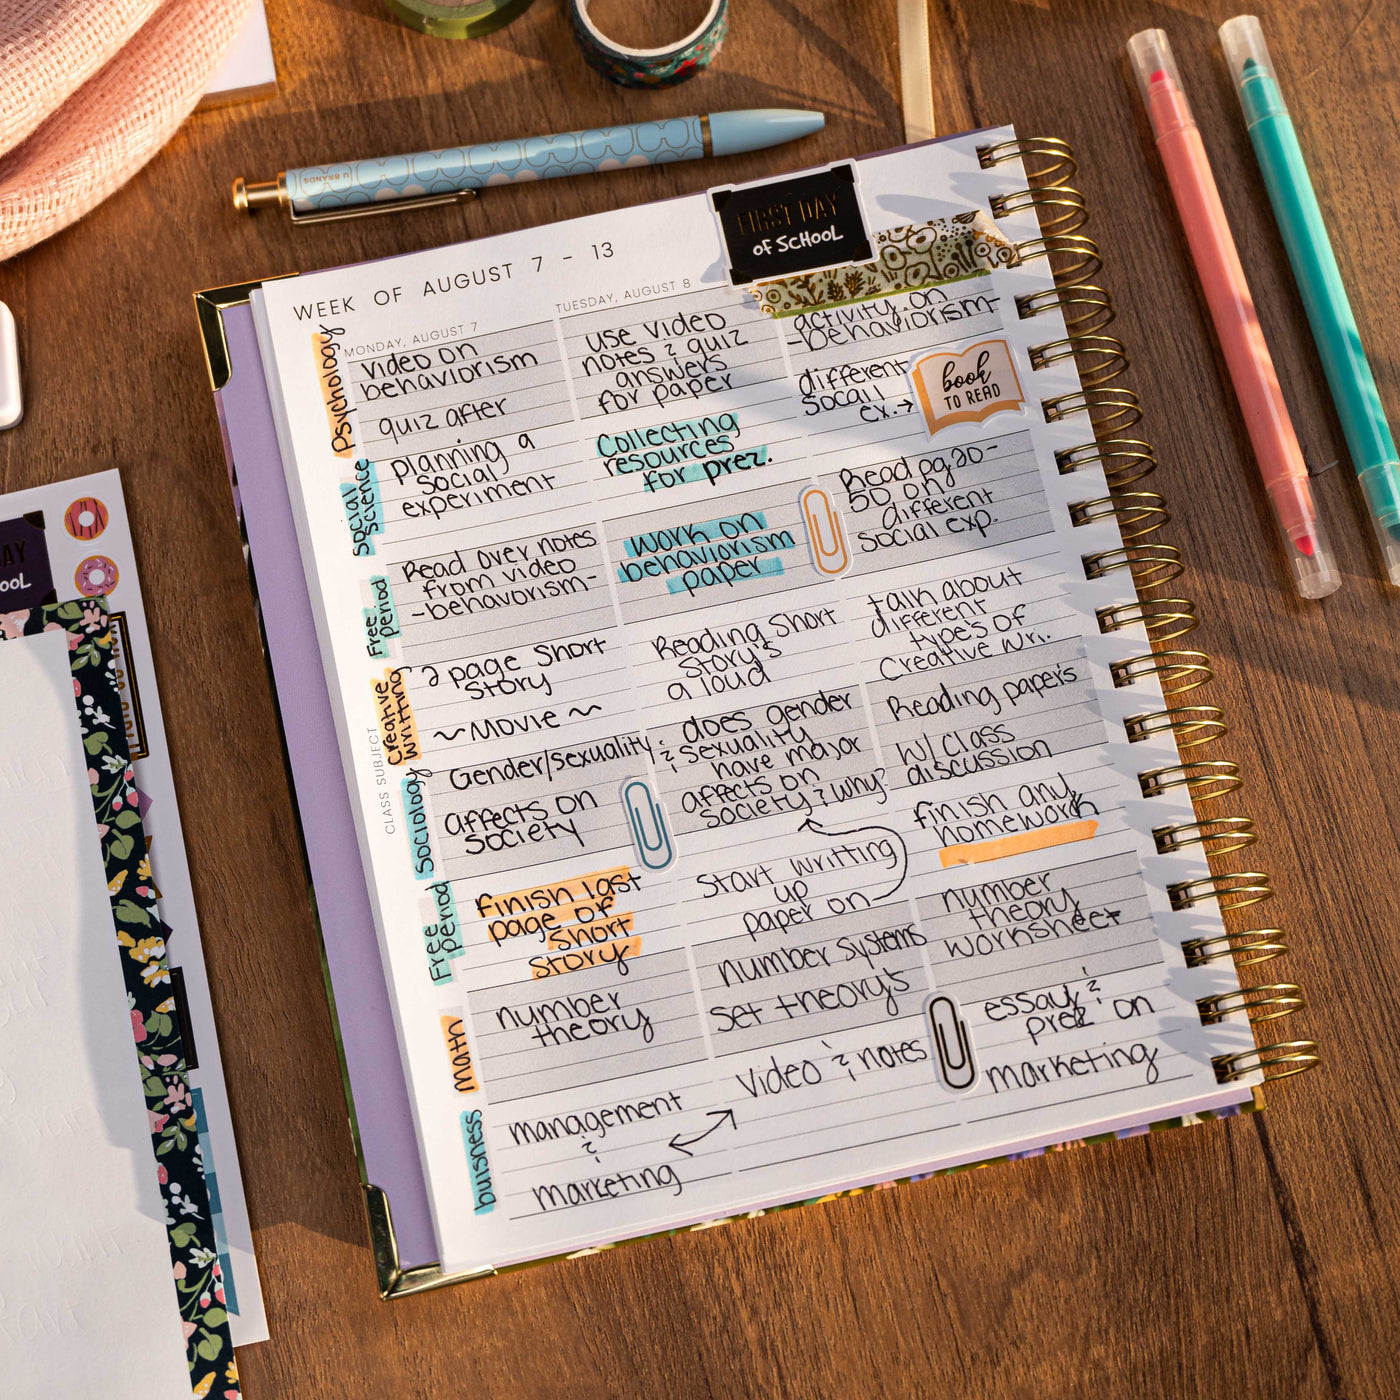 U BRANDS
FIRST DAY
OF SCHOOL
WEEK OF AUGUST 7 - 13
MONDAY, AUGUST 7
TUESDAY, AUGUST 8
CLASS SUBJECT
Psychology
video on
behaviorism
quiz after
use video
notes & quiz
answers
for paper
activity on
-behaviorism-
Social
Science
planning a
social
experiment
Collecting
resources
for prez.
different
socail
ex.→
book
TO READ
Free
Period
Read over notes
from video
-behavorism-
work on
behaviorism
paper
Read pg 20-
50 on
different
social exp.
Creative
Writting
2 page Short
Story
~Movie~
Reading Short
Story's
a loud
talk about
different
types of
Creative wri.
Sociology
Gender/sexuality
affects on
society
does gender
& sexuality
have major
affects on
society & why?
Reading papers
w/ class
discussion
Free
period
finish last
page of
short
story
Start writting
up
paper on
finish any
homework
Math
number
theory
number systems
set theory's
number
theory
worksheet
buisness
management
&
marketing
Video & notes
essay &
prez on
marketing
AY
OOL